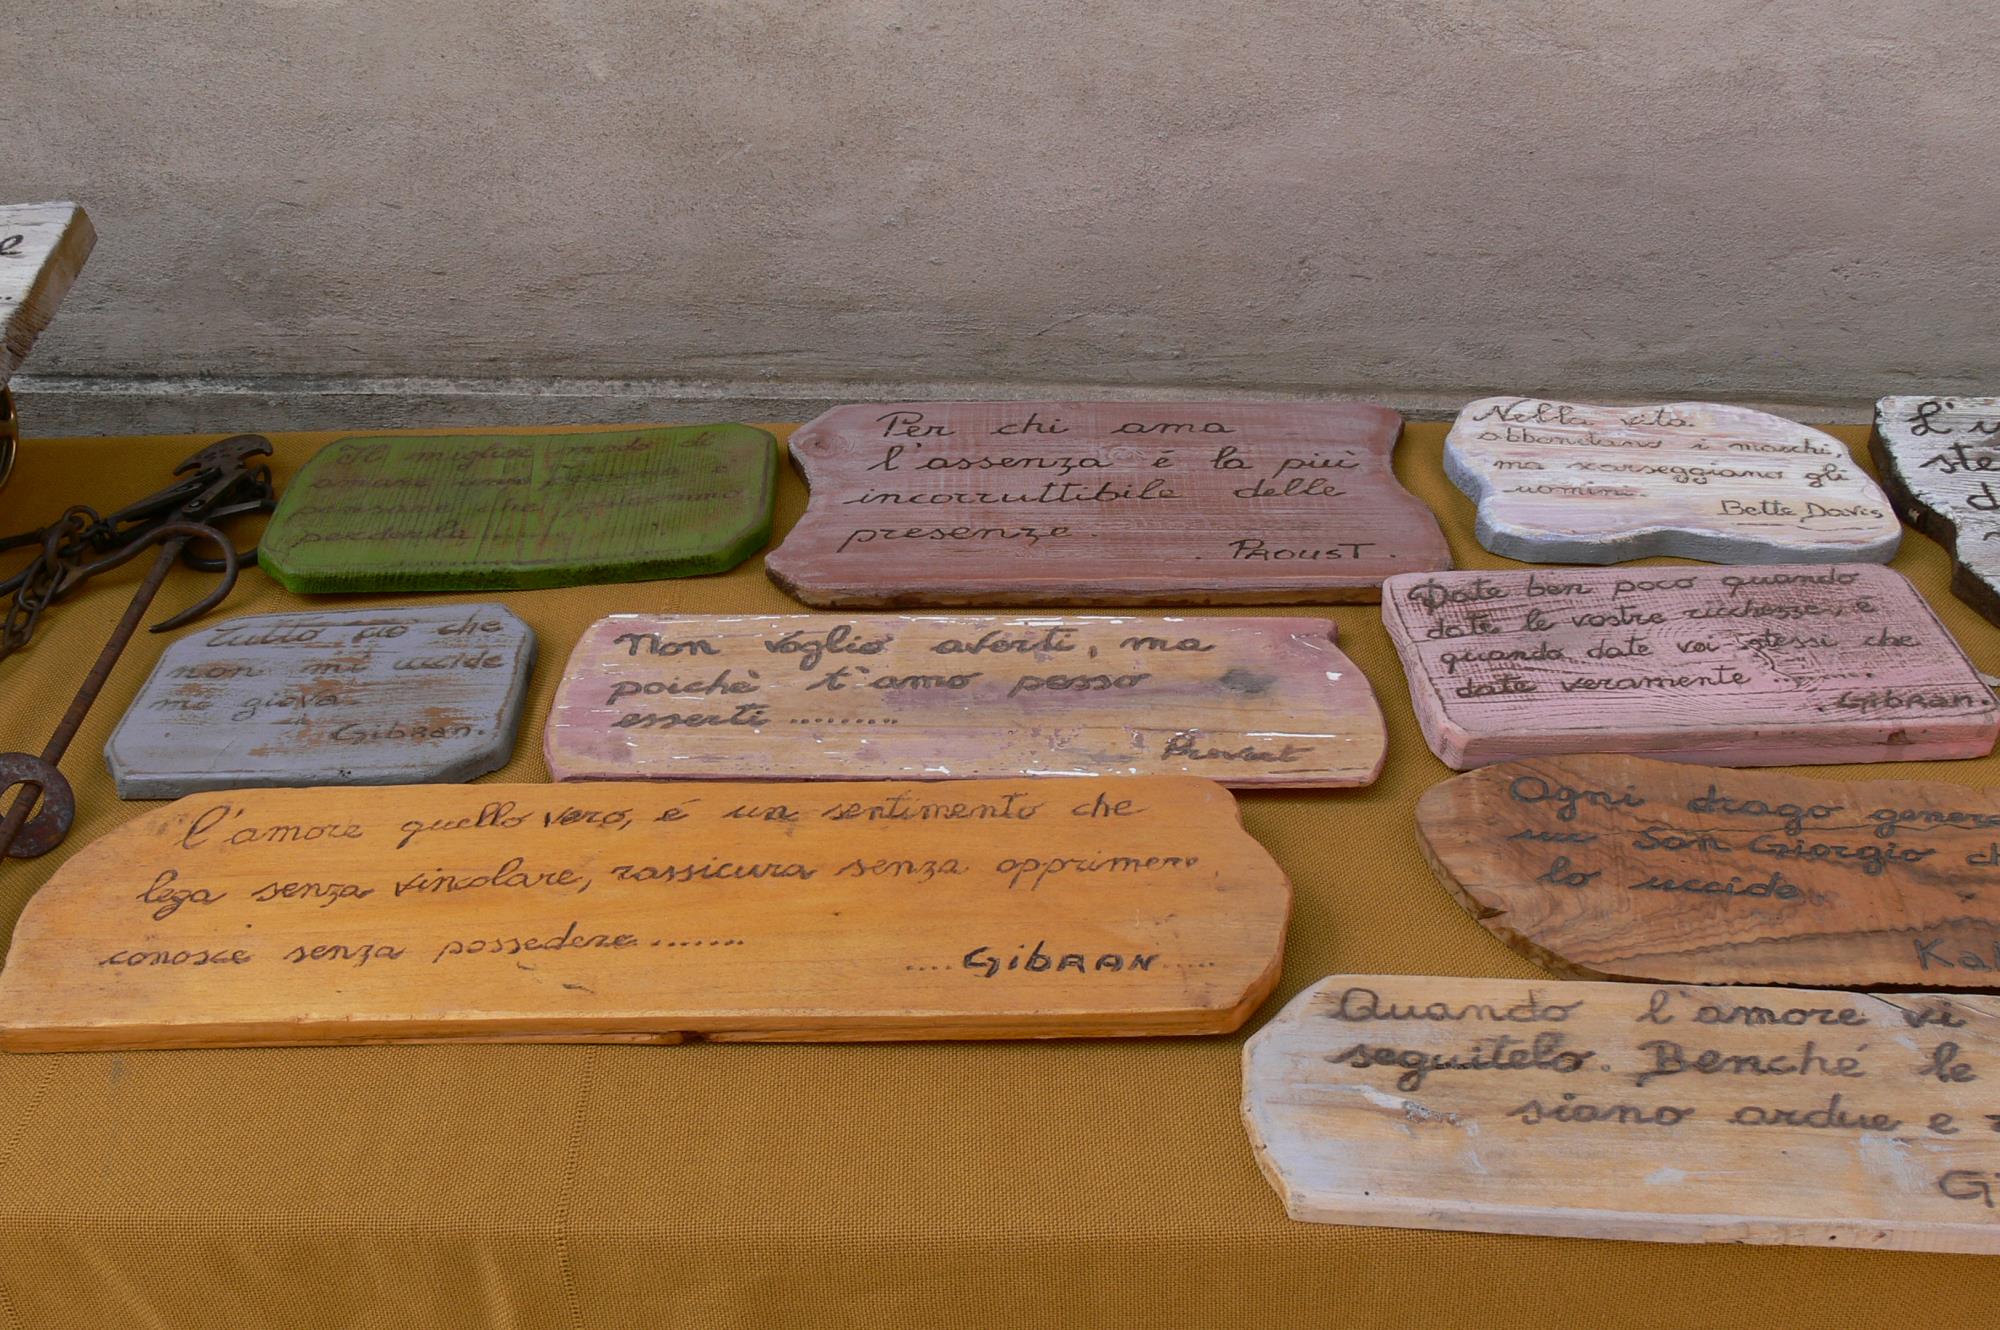 e
Il miglior modo di
amare una è
pensare che potremmo
perderla ...
Per chi ama
l'assenza é la più
incorruttibile delle
presenze.
PROUST.
Nella vita.
abbondano i maschi,
ma scarseggiano gli
uomini.
Bette Davis
L'u
ste
d
Tutto ciò che
non mi uccide
mi giova
Gibran.
Non voglio averti, ma
poichè t'amo posso
esserti .........
Date ben poco quando
date le vostre ricchezze, é
quando date voi stessi che
date veramente .......
Gibran.
l'amore quello vero, é un sentimento che
lega senza vincolare, rassicura senza opprimere,
conosce senza possedere.......
....GibRAN.....
Ogni drago genera
un San Giorgio ch
lo uccide.
Kal
Quando l'amore vi
seguitelo. Benché le
siano ardue e
Gi